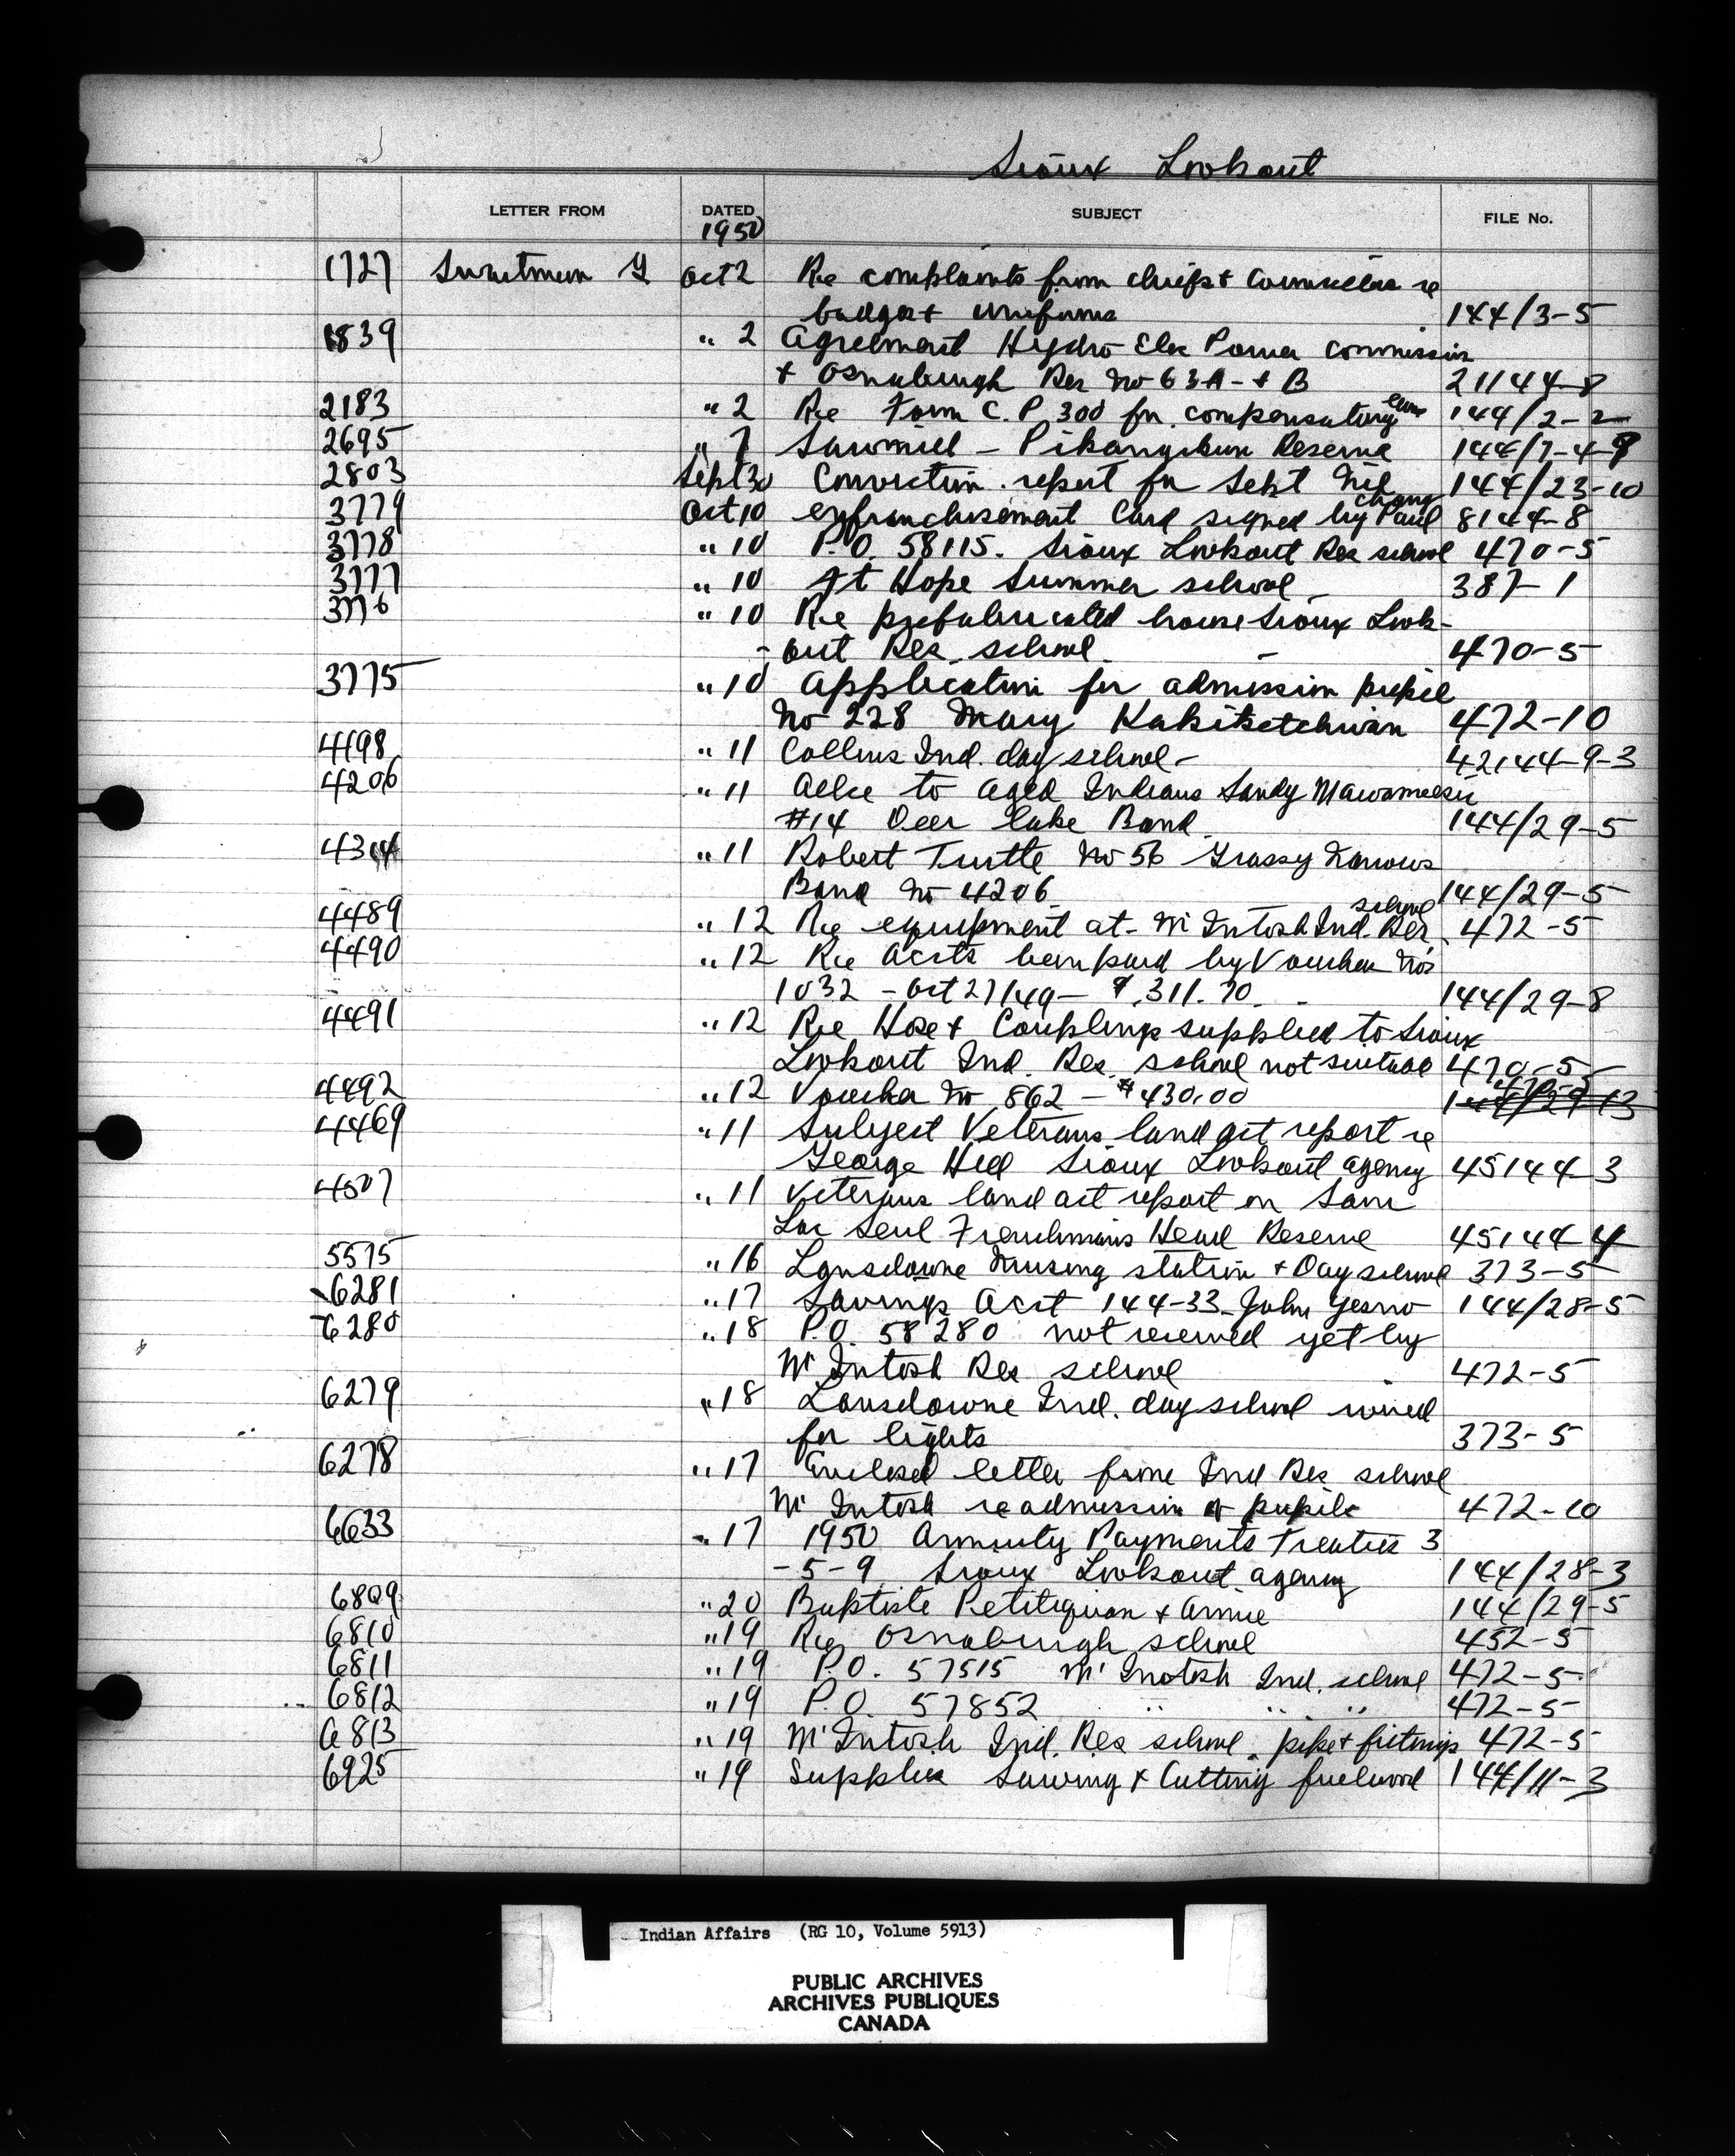 Sioux Lookout
LETTER FROM DATED SUBJECT FILE No.
1950
1727 Swartman G Oct 2 Re complaints from chiefs + Councillors re
badges + uniforms 144/3-5
1839 " 2 Agreement Hydro Elec Power Commission
+ Osnaburgh Res No 63A - + B 21144-8
2183 " 2 Re Form C.P. 300 for compensatory leave 144/2-2
2695 " 7 Sawmill - Pikangikum Reserve 144/7-4-9
2803 Sept 30 Conviction report for Sept Nil 144/23-10
3779 Oct 10 enfranchisement Card signed by Paul Chong 8144-8
3778 " 10 P.O. 58115. Sioux Lookout Res school 470-5
3777 " 10 Ft Hope Summer school 387-1
3776 " 10 Re prefabricated house Sioux Look-
- out Res. school 470-5
3775 " 10 Application for admission pupil
No 228 Mary Kakiketchwan 472-10
4198 " 11 Collins Ind. day school - 42144-9-3
4206 " 11 Allce to Aged Indians Sandy
#14 Deer Lake Band 144/29-5
4304 " 11 Robert Turtle No 56 Grassy Narrows
Band No 4206 144/29-5
4489 " 12 Re equipment at - McIntosh Ind. Res. school 472-5
4490 " 12 Re Accts being paid by Voucher No's
1032 - Oct 27/49 - $311.70 - 144/29-8
4491 " 12 Re Hose + Couplings supplied to Sioux
Lookout Ind. Res. school not suitable 470-5
4492 " 12 Voucher No 862 - $430.00 470-5 144/29-13
4469 " 11 Subject Veterans land act report re
George Hill Sioux Lookout agency 45144-3
4507 " 11 Veterans land act report on Sam
Lac Seul Frenchman's Head Reserve 45144-4
5575 " 16 Lansdowne Nursing station + Day school 373-5
6281 " 17 Savings Acct 144-33 John Yesno 144/28-5
6280 " 18 P.O. 58280 not received yet by
McIntosh Res school 472-5
6279 " 18 Lansdowne Ind. day school wired
for lights 373-5
6278 " 17 Enclosed letter from Ind Res school
McIntosh re admission of pupils 472-10
6633 " 17 1950 Annuity Payments Treaties 3
- 5-9 Sioux Lookout agency 144/28-3
6809 " 20 Baptiste Petitiquan + Annie 144/29-5
6810 " 19 Re Osnaburgh school 452-5
6811 " 19 P.O. 57515 Mc Inotsh Ind. school 472-5
6812 " 19 P.O. 57852 " " " 472-5
6813 " 19 McIntosh Ind. Res school. pipe + fittings 472-5
6925 " 19 Supplies Sawing + Cutting fuelwood 144/11-3
Indian Affairs (RG 10, Volume 5913)
PUBLIC ARCHIVES
ARCHIVES PUBLIQUES
CANADA